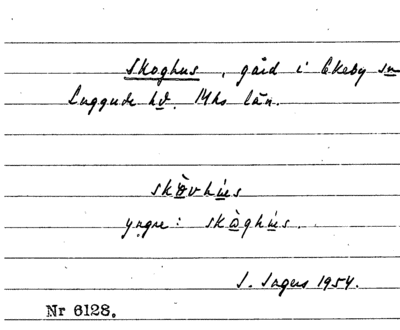 Skoghus, gård i Ekeby sn
Luggude hd. Mhs län.
skòvhùs
yngre: skòghùs.
I. Ingers 1954.
Nr 6128.